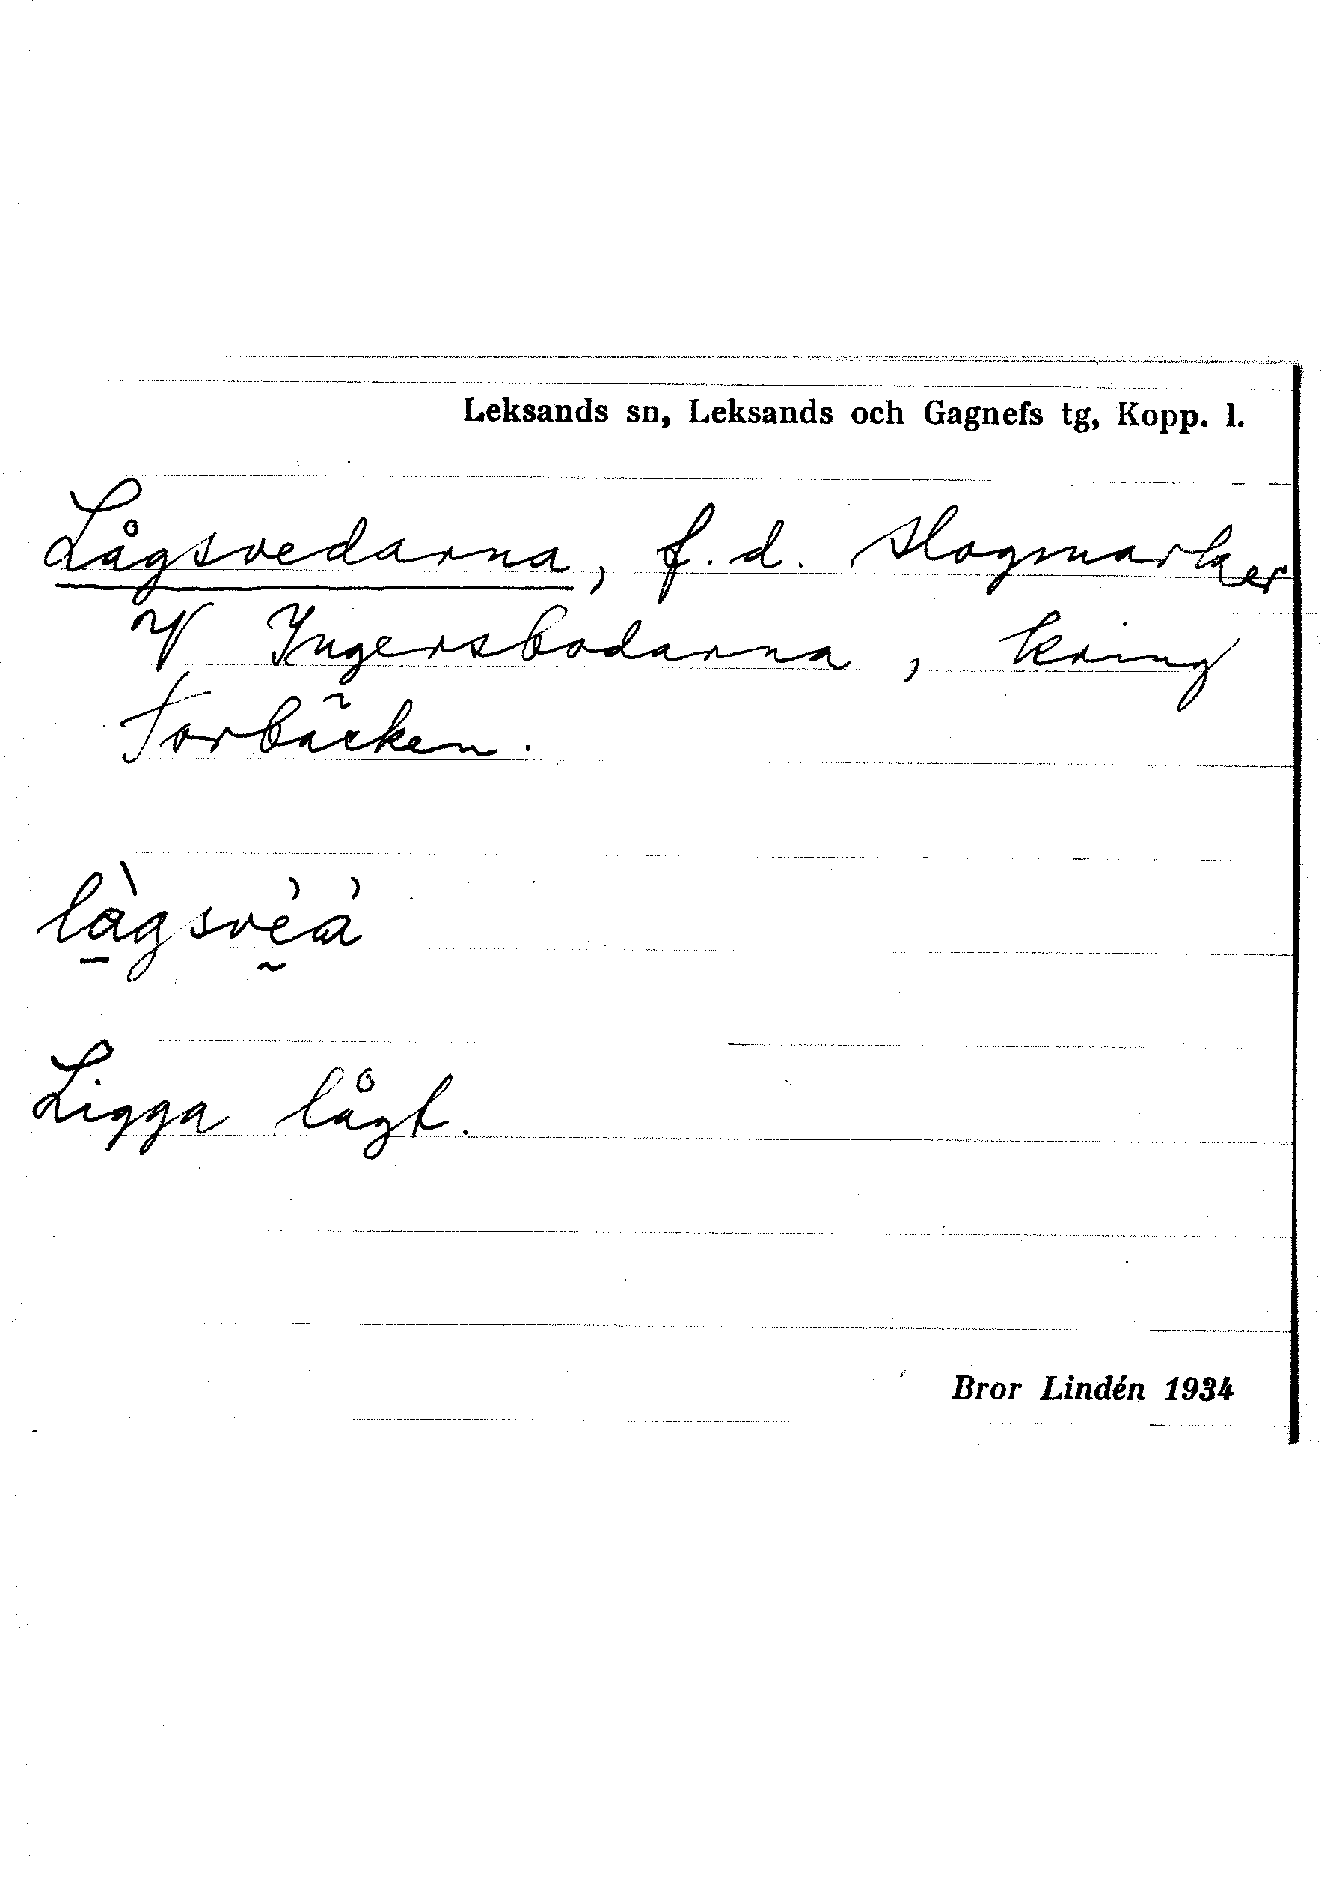 Leksands sn, Leksands och Gagnefs tg, Kopp. l.
Lågsvedarna, f.d. slogmarker
V Ingersbodarna, kring
Torbäcken.
Ligga lågt.
Bror Lindén 1934